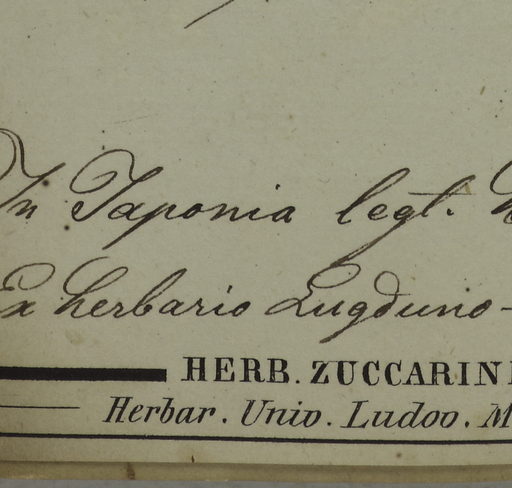 In Japonia legt.
Ex herbario Lugduno-
HERB. ZUCCARINI
Herbar. Univ. Ludov. M